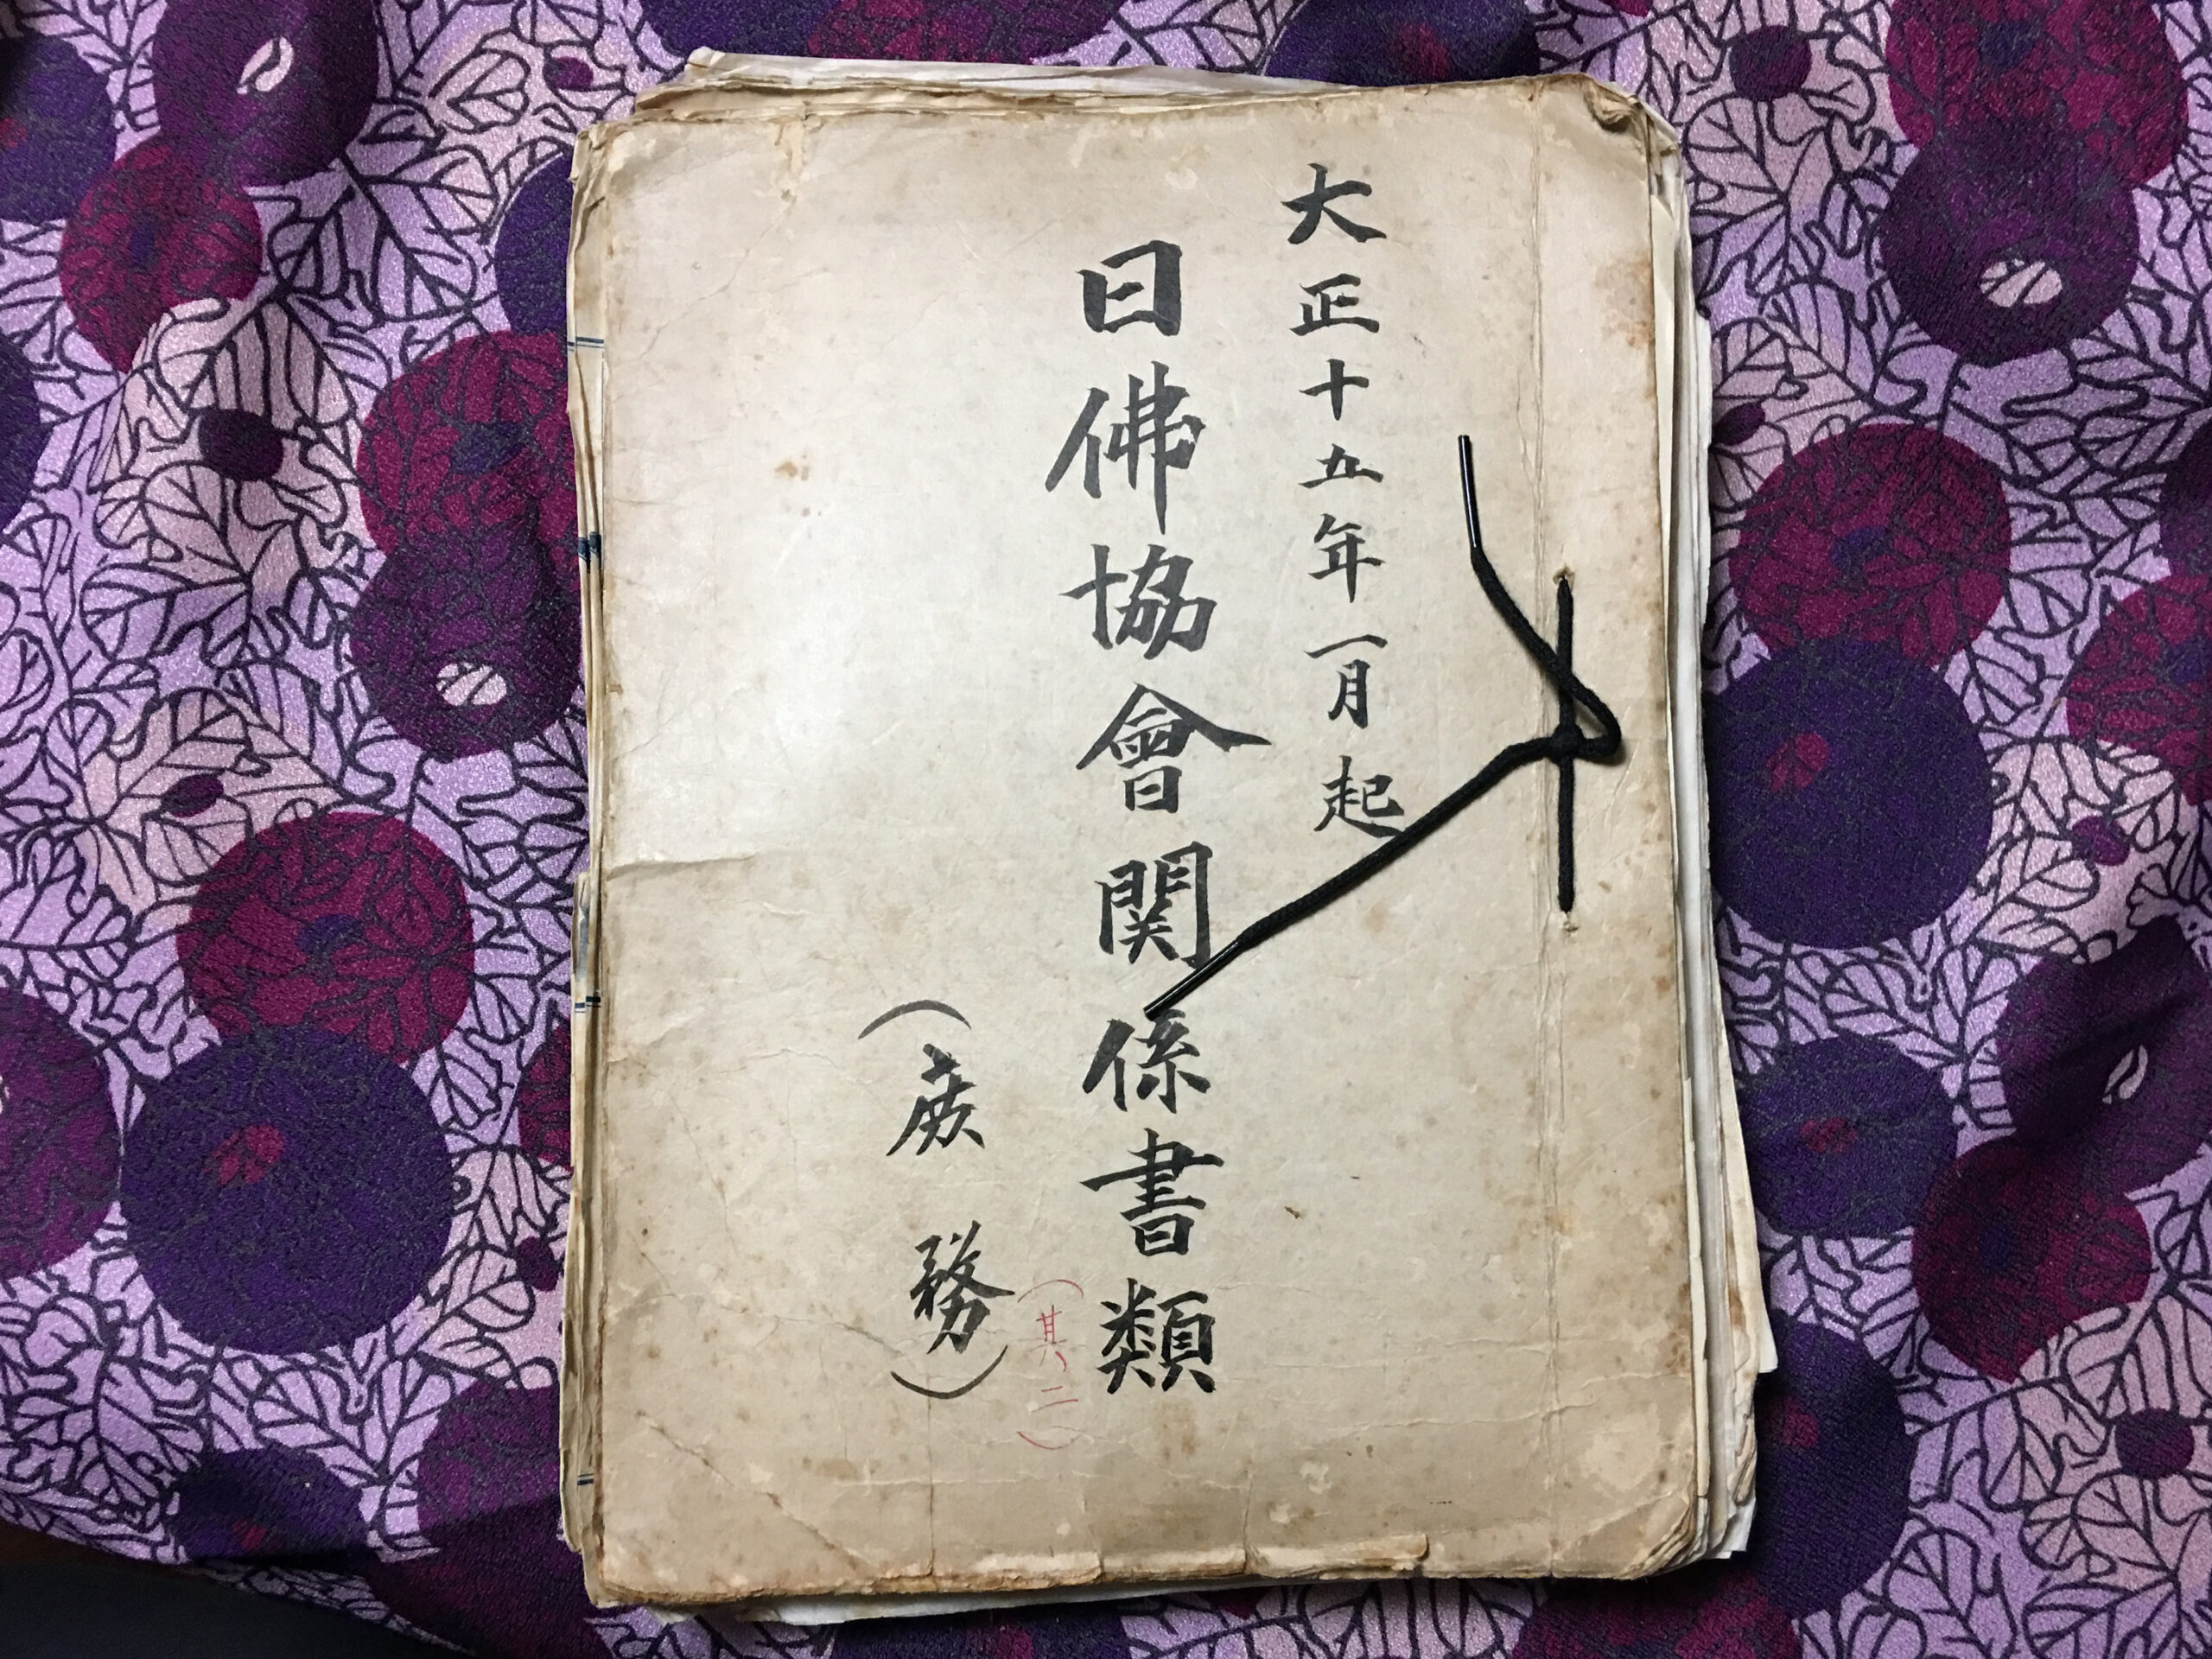 大正十五年一月起
日佛協會関係書類
(其二)
(庶務)